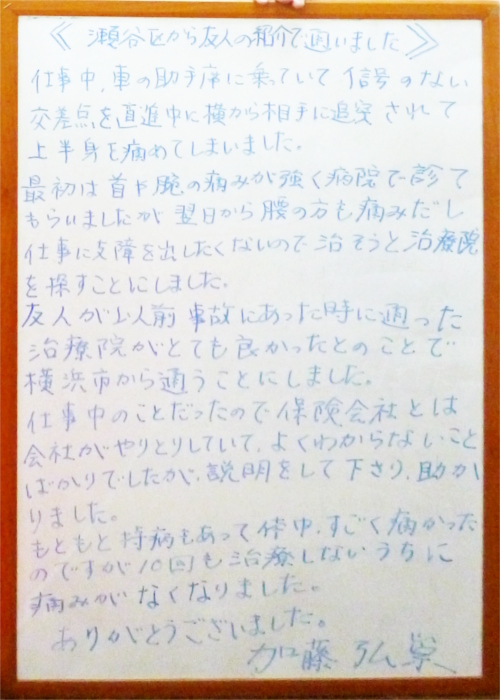 《瀬谷区から友人の紹介で通いました》
仕事中、車の助手席に乗っていて信号のない
交差点を直進中に横から相手に追突されて
上半身を痛めてしまいました。
最初は首や腕の痛みが強く病院で診て
もらいましたが翌日から腰の方も痛みだし
仕事に支障を出したくないので治そうと治療院
を探すことにしました。
友人が以前事故にあった時に通った
治療院がとても良かったとのことで
横浜市から通うことにしました。
仕事中のことだったので保険会社とは
会社がやりとりしていて、よくわからないこと
ばかりでしたが、説明をして下さり、助か
りました。
もともと持病もあって体中、すごく痛かった
のですが10回も治療しないうちに
痛みがなくなりました。
ありがとうございました。
加藤弘